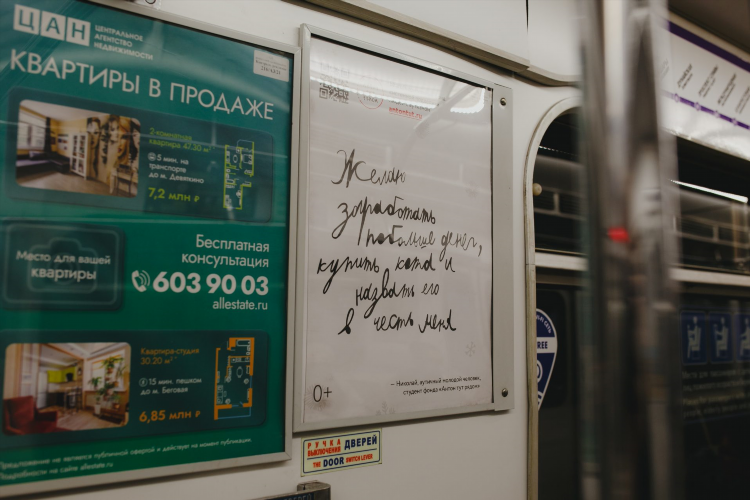 ЦАН
ЦЕНТРАЛЬНОЕ
АГЕНТСТВО
НЕДВИЖИМОСТИ
КВАРТИРЫ В ПРОДАЖЕ
2 комнатная
квартира 47.50 м²
5 мин. на
транспорте
до м. Девяткино
7,2 МЛН ₽
Место для вашей
квартиры
Бесплатная
консультация
603 90 03
allestate.ru
Квартира-студия
30.20 м²
15 мин. пешком
до м. Беговая
6,85 МЛН ₽
Предложение не является публичной офертой и действует на момент публикации.
Подробности на сайте allestate.ru
antontut.ru
Желаю
заработать
побольше денег,
купить кота и
назвать его
в честь меня
0+
– Николай, аутичный молодой человек,
студент фонда «Антон тут рядом»
РУЧКА
ВЫКЛЮЧЕНИЯ
ДВЕРЕЙ
THE DOOR SWITCH LEVER